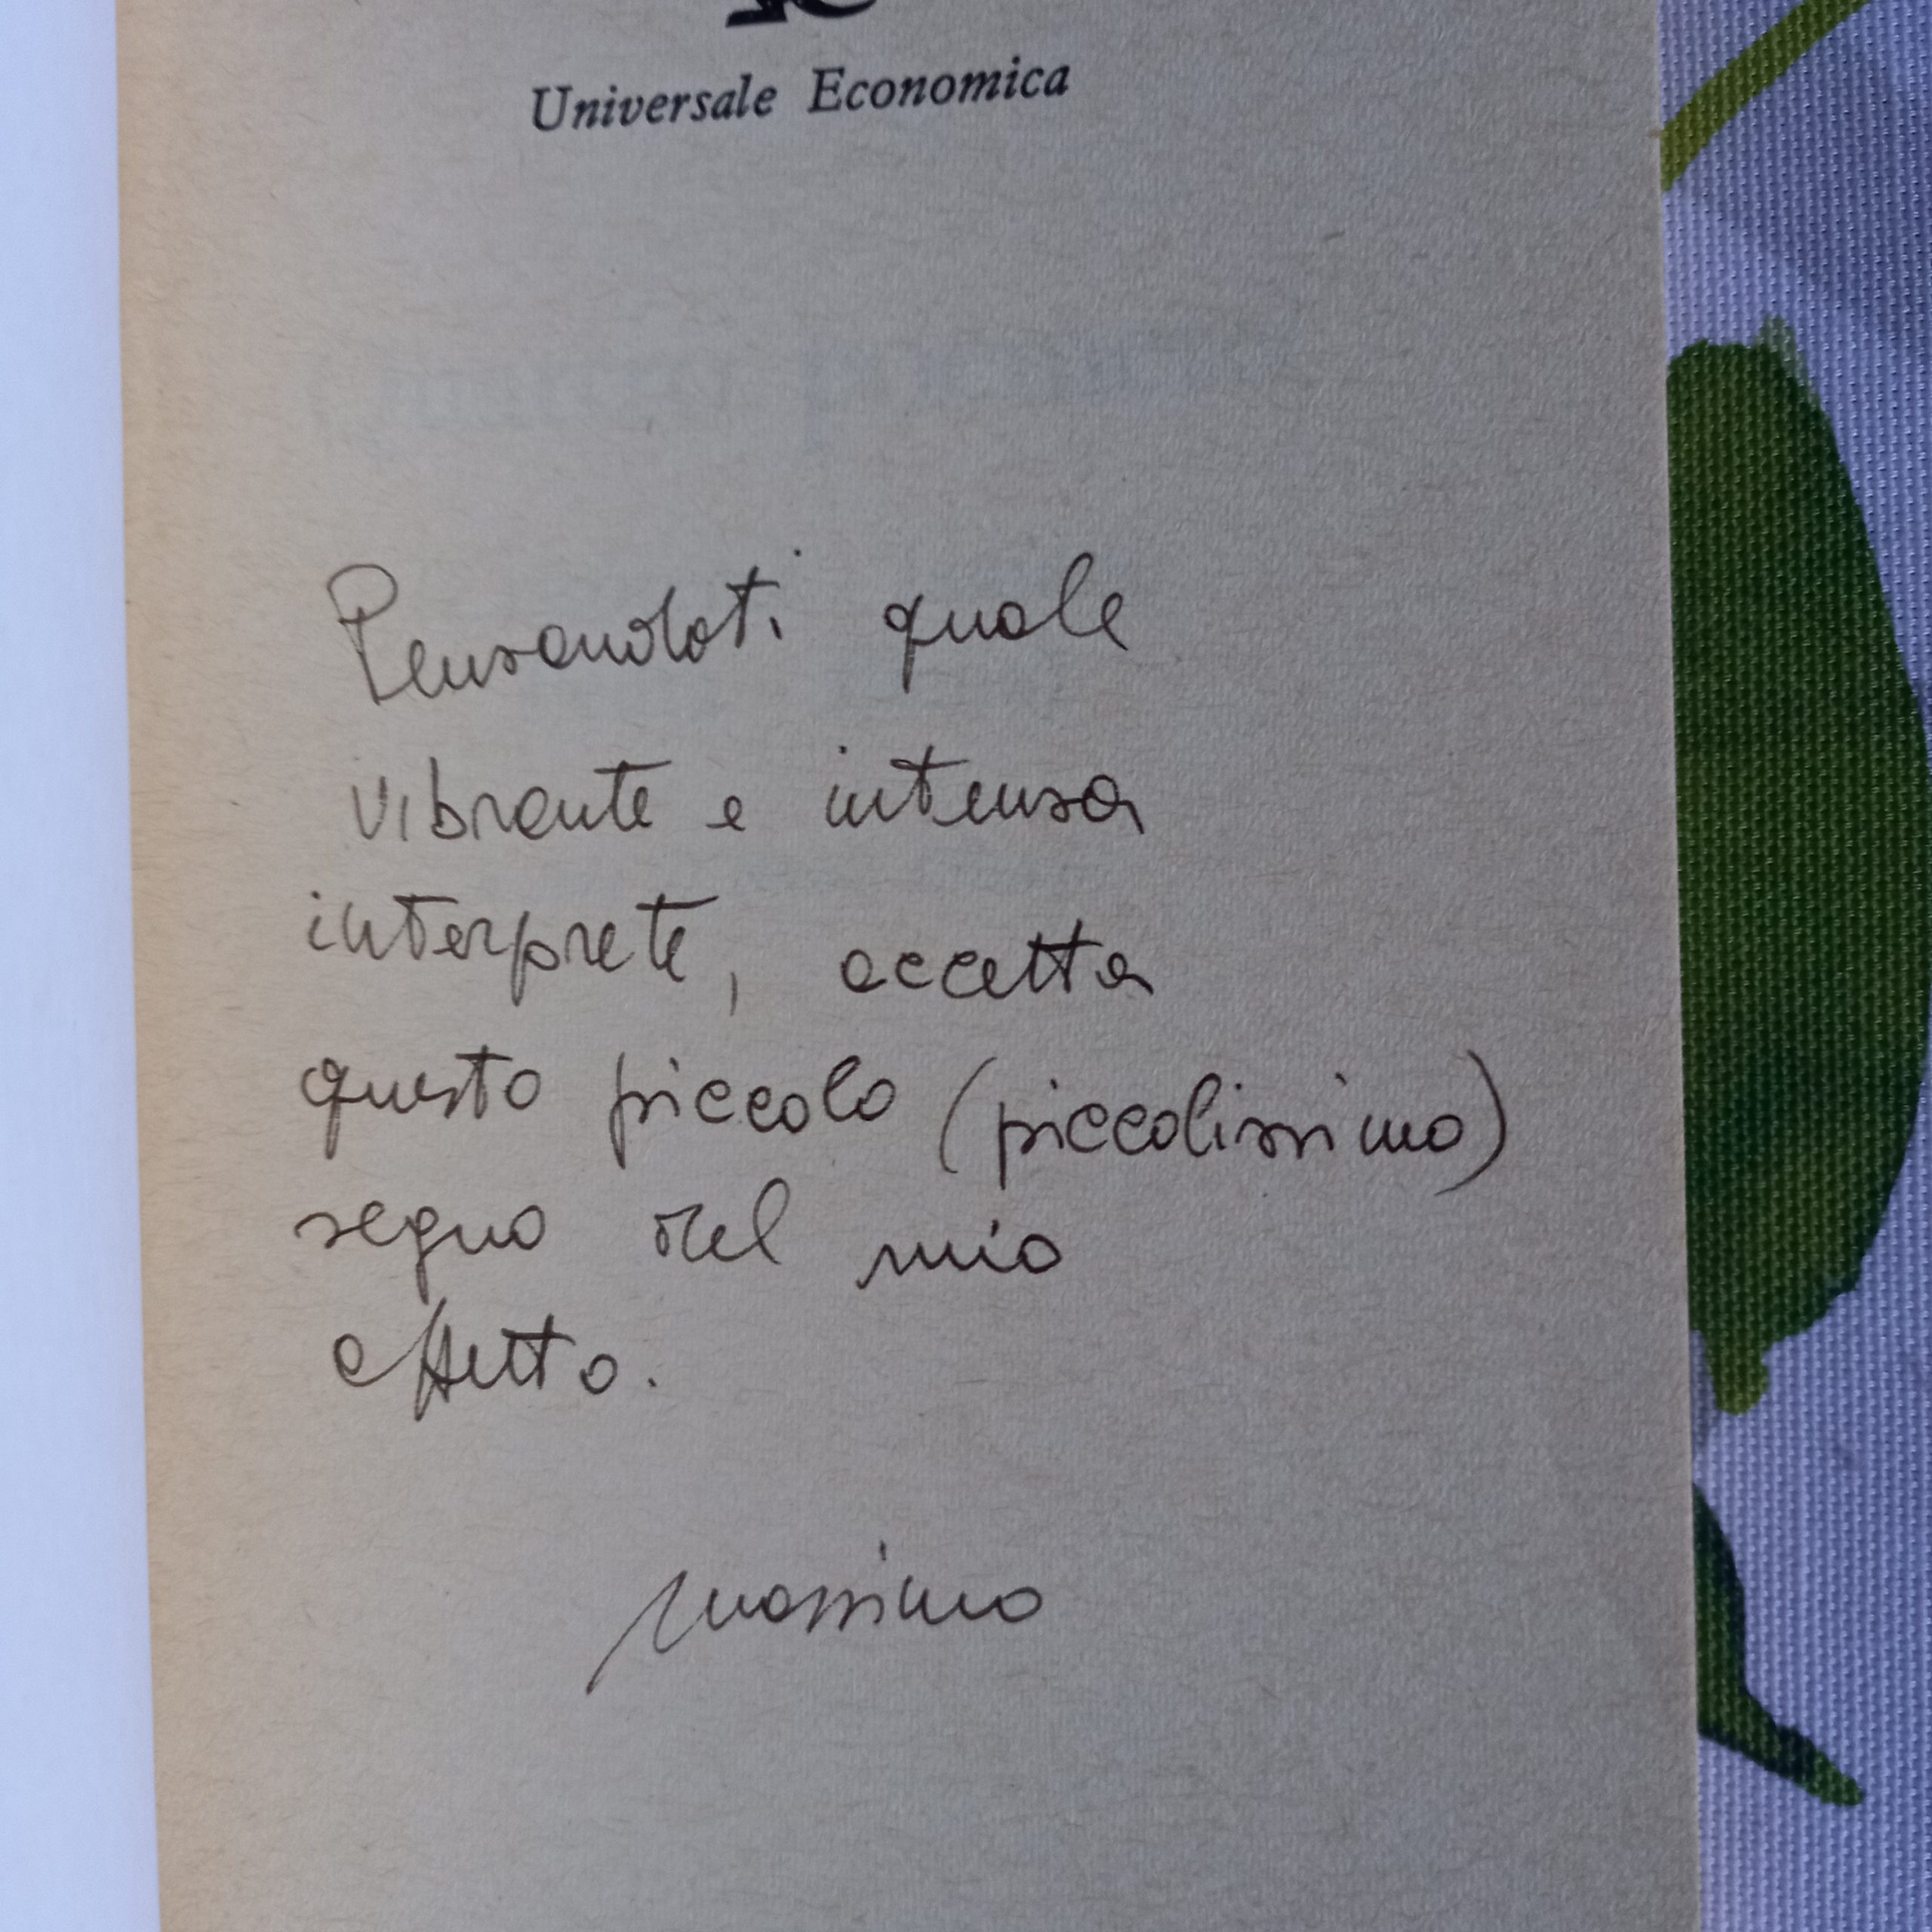 Universale Economica
Pensandoti quale
vibrante e intensa
interprete, accetta
questo piccolo (piccolissimo)
segno del mio
affetto.
Massimo